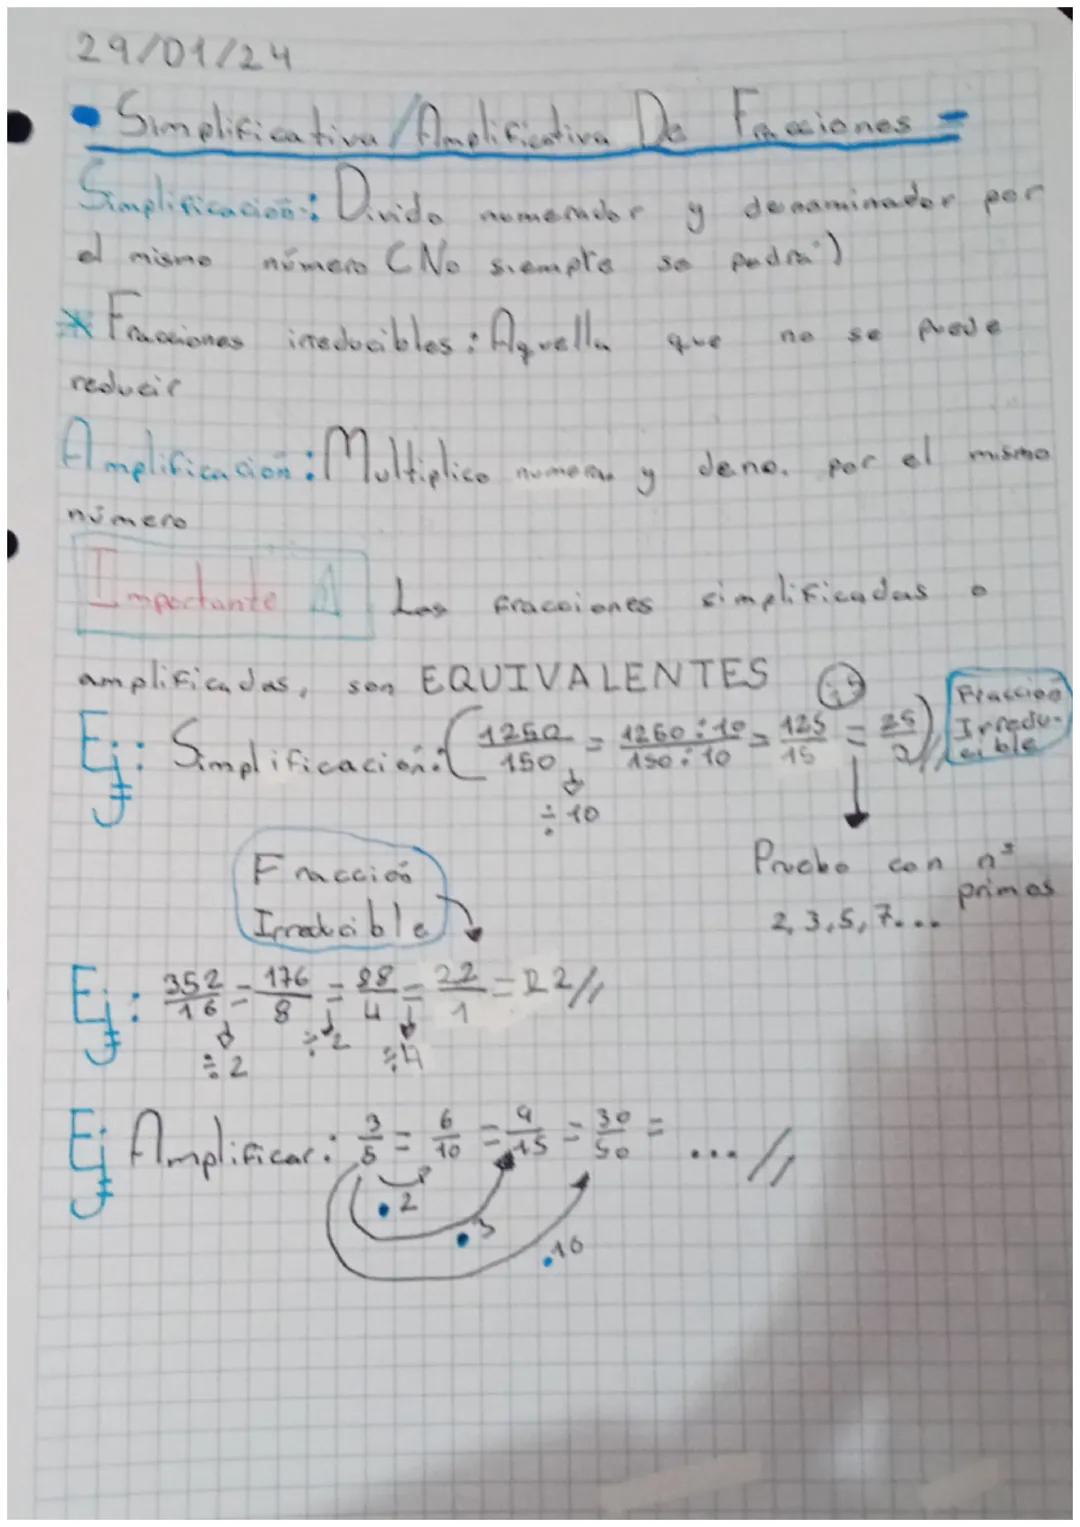 29/01/24
• Simplificativa/Amplificativa De Fracciones -
Simplificación: Divido numerador y denominador por
el mismo número (No siempre se podrá)
* Fracciones irreducibles: Aquella que no se puede
reducir
Amplificación: Multiplico numera. y deno. por el mismo
número
Importante Las fracciones simplificadas o
amplificadas, son EQUIVALENTES
Ej: Simplificación: (1250/150 = 1250:10/150:10 = 125/15 = 25/) // Fracción Irredu-cible
÷10
:5
Pruebo con nº primos
2, 3, 5, 7...
Fracción
Irreducible
Ej: 352/16 = 176/8 = 88/4 = 22/1 = 22//
÷2 ÷2 ÷4
Ej Amplificar: 3/5 = 6/10 = 9/15 = 30/50 = ... //
·2
·3
·10